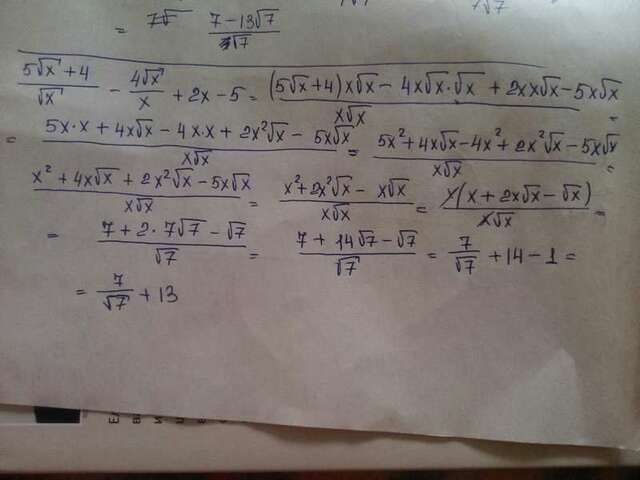 = 7√ (7-13√7)/(3√7)
(5√x+4)/√x - 4√x/x + 2x-5 = ((5√x+4)x√x - 4x√x·√x + 2xx√x-5x√x)/(x√x) =
= (5x·x + 4x√x - 4x·x + 2x²√x - 5x√x)/(x√x) = (5x²+4x√x-4x²+2x²√x-5x√x)/(x√x) =
(x²+4x√x+2x²√x-5x√x)/(x√x) = (x²+2x²√x - x√x)/(x√x) = x(x+2x√x-√x)/(x√x) =
= (7+2·7√7-√7)/√7 = (7+14√7-√7)/√7 = 7/√7 + 14-1 =
= 7/√7 + 13